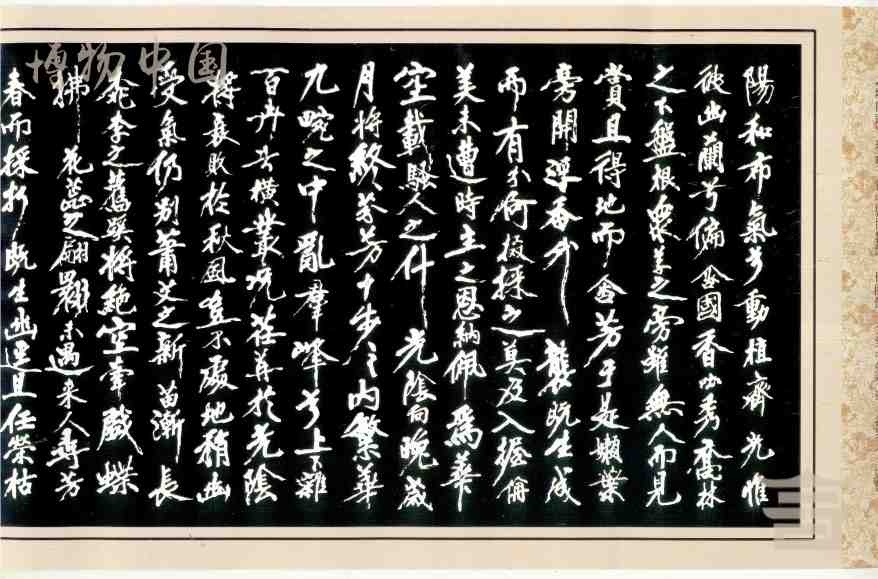 陽和布氣兮動植齊光惟
彼幽蘭兮偏含國香吐秀喬林
之下盤根衆草之旁雖無人而見
賞且得地而含芳于是嫩葉
旁開浮香外襲既生成
而有分何掇採之莫及入握偁
美未遭時主之恩納佩爲華
空載騷人之什光陰向晚歲
月將終芬芳十步之内繁華
九畹之中亂羣峰兮上下雜
百卉兮橫叢况荏苒於光陰
將衰敗於秋風豈不處地稍幽
受氣仍别蕭艾之新苗漸長
桃李之舊蹊將絶空牽戲蝶
拂花蕊之翩翾未遇來人尋芳
春而採折既生幽逕且任榮枯
博物中国